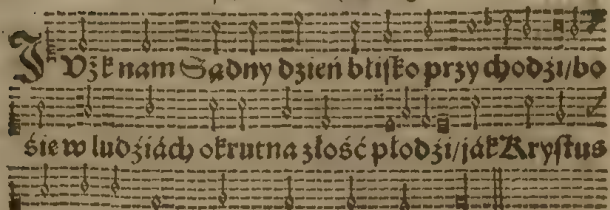 JUżk nam Sądny dzień blisko przychodzi/bo
sie w ludziách okrutna złość płodzi/ják Krystus